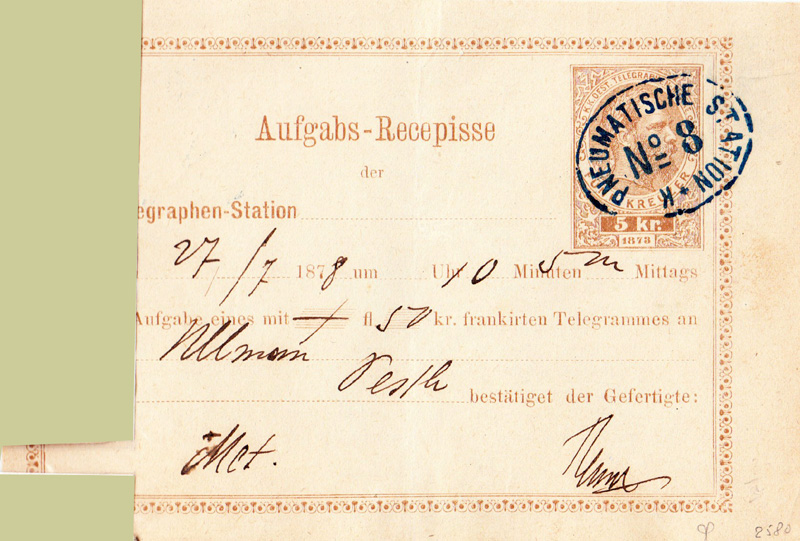 Aufgabs-Recepisse
der
egraphen-Station
27/7 1878 um Uhr 10 Minuten 5 m Mittags
Aufgabe eines mit fl 50 kr. frankirten Telegrammes an
Ullmann
Pesth bestätiget der Gefertigte:
PNEUMATISCHE STATION K
No 8
KREUZER
5 kr.
1873
8580